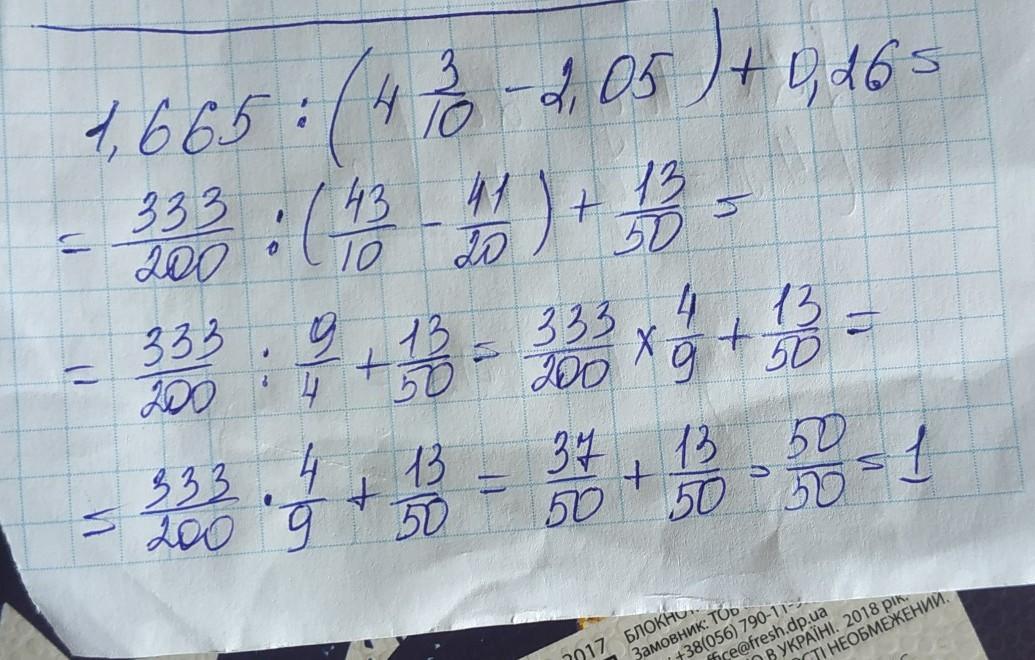 1,665 : (4 3/10 - 2,05) + 0,26 =
= 333/200 : (43/10 - 41/20) + 13/50 =
= 333/200 : 9/4 + 13/50 = 333/200 × 4/9 + 13/50 =
= 333/200 · 4/9 + 13/50 = 37/50 + 13/50 = 50/50 = 1
2017
БЛОКНО
Замовник: ТОВ
+38(056) 790-11-
ffice@fresh.dp.ua
О В УКРАЇНІ. 2018 рік.
ОСТІ НЕОБМЕЖЕНИЙ.